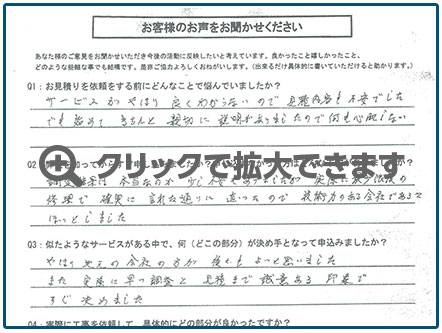 お客様のお声をお聞かせください
あなた様のご意見をお聞かせいただき今後の活動に反映したいと考えています。良かったこと嬉しかったこと、
どのような些細な事でも結構です。是非ご協力よろしくおねがいします。(出来るだけ具体的に書いていただけると助かります。)
Q1:お見積りを依頼をする前にどんなことで悩んでいましたか?
サービスがやはり良くわからないので 見積内容も不安でした
でも 改めて きちんと 親切に 説明がありましたので何も心配しない
Q2
クリックで拡大できます
調査結果は 本当なのか 少し不安もありましたが 実際に
修理で 確実に 言れた通りに 直ったので 技術力のある会社であると
ほっとしました
Q3:似たようなサービスがある中で、何(どこの部分)が決め手となって申込みましたか?
やはり 地元の会社の方が 後々も よいと思いました
また 実際に 早い調査と 見積まで 誠意ある 印象で
すぐ 決めました
Q4:実際に工事を依頼して、具体的にどの部分が良かったですか?